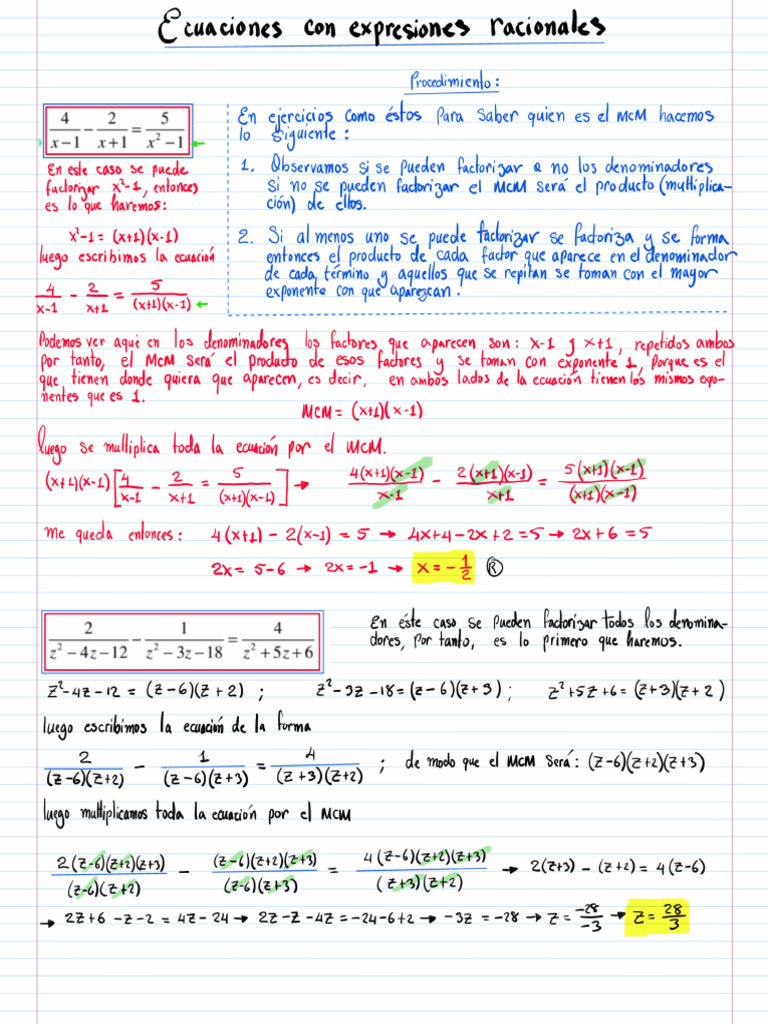 Ecuaciones con expresiones racionales
Procedimiento:
4/(x−1) − 2/(x+1) = 5/(x²−1)
En este caso se puede
factorizar x²-1, entonces
es lo que haremos:
x²-1 = (x+1)(x-1)
luego escribimos la ecuación
4/(x-1) - 2/(x+1) = 5/((x+1)(x-1))
En ejercicios como éstos para saber quien es el MCM hacemos
lo siguiente:
1. Observamos si se pueden factorizar o no los denominadores
Si no se pueden factorizar el MCM será el producto (multiplica-
ción) de ellos.
2. Si al menos uno se puede factorizar se factoriza y se forma
entonces el producto de cada factor que aparece en el denominador
de cada término y aquellos que se repitan se toman con el mayor
exponente con que aparezcan.
Podemos ver aquí en los denominadores los factores que aparecen son: x-1 y x+1, repetidos ambos
por tanto, el MCM será el producto de esos factores y se toman con exponente 1, porque es el
que tienen donde quiera que aparecen, es decir, en ambos lados de la ecuación tienen los mismos expo-
nentes que es 1.
MCM = (x+1)(x-1)
luego se multiplica toda la ecuación por el MCM.
(x+1)(x-1)[4/(x-1) - 2/(x+1) = 5/((x+1)(x-1))] → 4(x+1)(x-1)/(x-1) - 2(x+1)(x-1)/(x+1) = 5(x+1)(x-1)/((x+1)(x-1))
Me queda entonces: 4(x+1) - 2(x-1) = 5 → 4x+4-2x+2=5 → 2x+6=5
2x = 5-6 → 2x = -1 → x = -1/2 Ⓡ
2/(z²−4z−12) − 1/(z²−3z−18) = 4/(z²+5z+6)
En éste caso se pueden factorizar todos los denomina-
dores, por tanto, es lo primero que haremos.
z²-4z-12 = (z-6)(z+2) ; z²-3z-18=(z-6)(z+3) ; z²+5z+6=(z+3)(z+2)
luego escribimos la ecuación de la forma
2/((z-6)(z+2)) - 1/((z-6)(z+3)) = 4/((z+3)(z+2)) ; de modo que el MCM será: (z-6)(z+2)(z+3)
luego multiplicamos toda la ecuación por el MCM
2(z-6)(z+2)(z+3)/((z-6)(z+2)) - (z-6)(z+2)(z+3)/((z-6)(z+3)) = 4(z-6)(z+2)(z+3)/((z+3)(z+2)) → 2(z+3) - (z+2) = 4(z-6)
→ 2z+6-z-2 = 4z-24 → 2z-z-4z=-24-6+2 → -3z = -28 → z = -28/-3 → z = 28/3